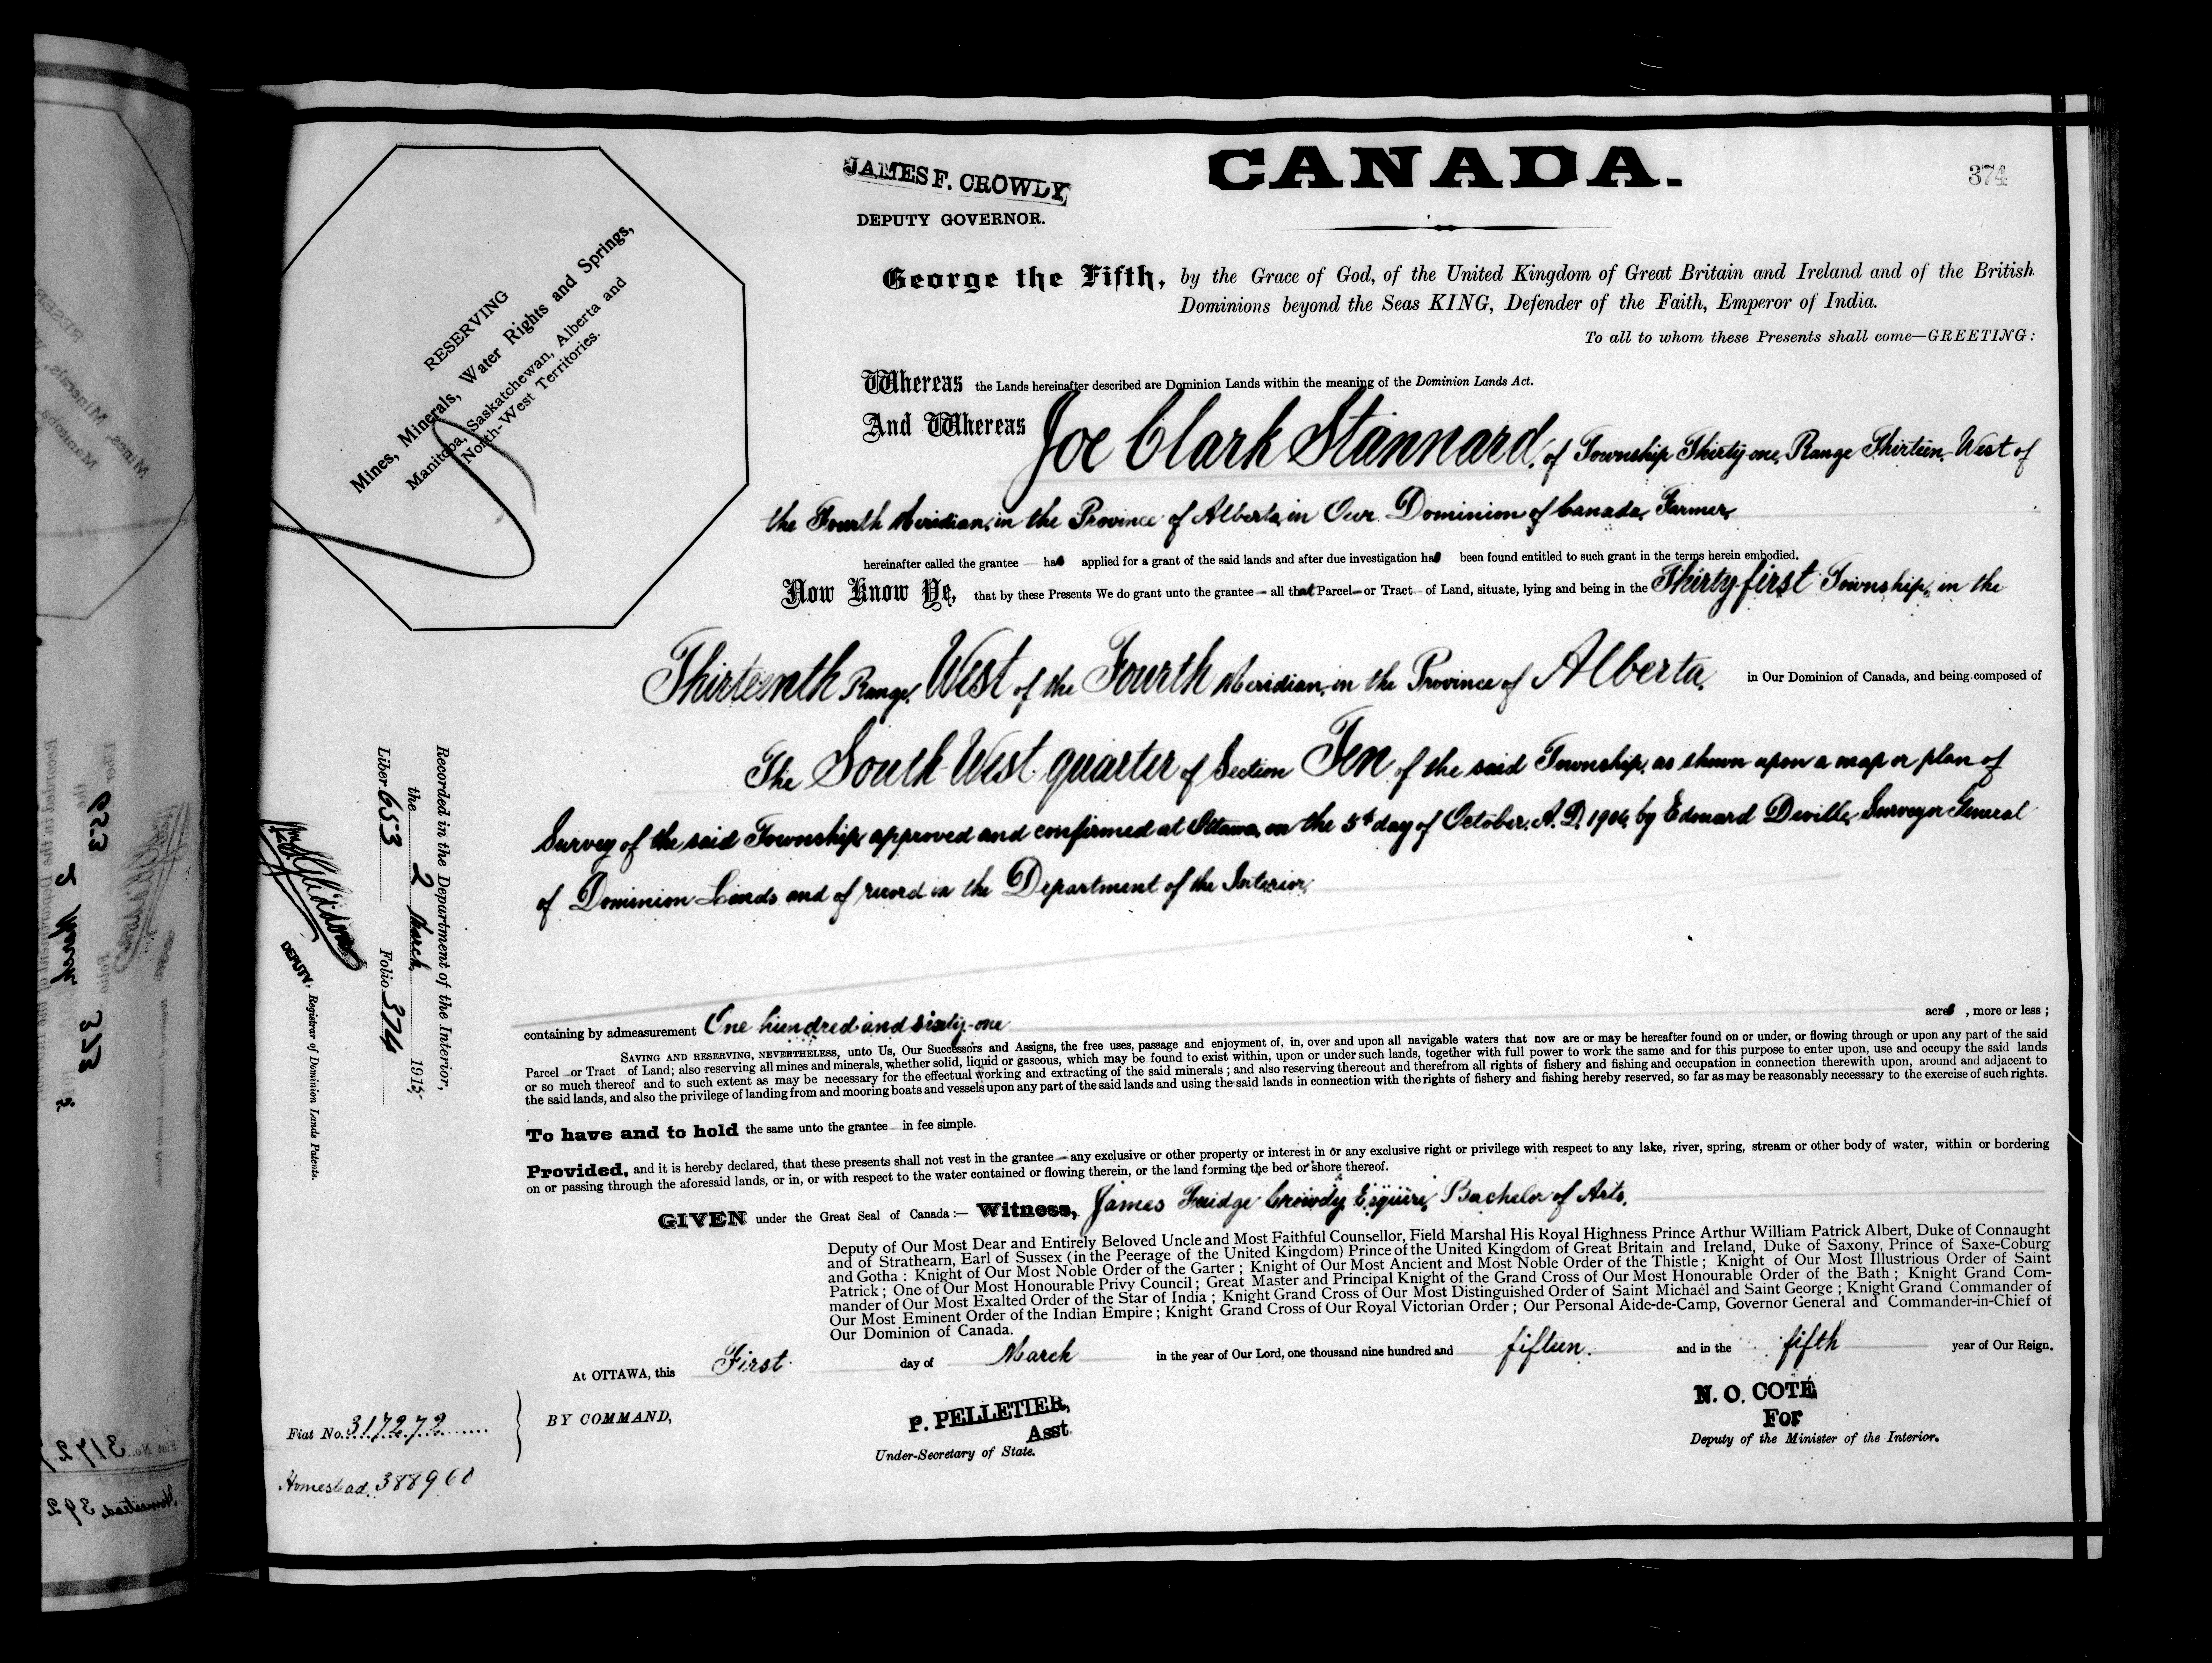 CANADA.
374
JAMES F. CROWDY,
DEPUTY GOVERNOR.
RESERVING
Mines, Minerals, Water Rights and Springs,
Manitoba, Saskatchewan, Alberta and
North-West Territories.
George the Fifth, by the Grace of God, of the United Kingdom of Great Britain and Ireland and of the British
Dominions beyond the Seas KING, Defender of the Faith, Emperor of India.
To all to whom these Presents shall come—GREETING:
Whereas the Lands hereinafter described are Dominion Lands within the meaning of the Dominion Lands Act.
And Whereas Joe Clark Stannard, of Township Thirty-one, Range Thirteen, West of
the Fourth Meridian, in the Province of Alberta, in Our Dominion of Canada, Farmer,
hereinafter called the grantee — has applied for a grant of the said lands and after due investigation has been found entitled to such grant in the terms herein embodied.
Now Know Ye, that by these Presents We do grant unto the grantee — all that Parcel — or Tract — of Land, situate, lying and being in the Thirty-first Township, in the
Thirteenth Range, West of the Fourth Meridian, in the Province of Alberta, in Our Dominion of Canada, and being composed of
The South West quarter of Section Ten of the said Township, as shewn upon a map or plan of
Survey of the said Township approved and confirmed at Ottawa, on the 5th day of October, A.D. 1904, by Edouard Deville, Surveyor General
of Dominion Lands and of record in the Department of the Interior,
containing by admeasurement One hundred and sixty-one acres , more or less ;
SAVING AND RESERVING, NEVERTHELESS, unto Us, Our Successors and Assigns, the free uses, passage and enjoyment of, in, over and upon all navigable waters that now are or may be hereafter found on or under, or flowing through or upon any part of the said
Parcel — or Tract of Land; also reserving all mines and minerals, whether solid, liquid or gaseous, which may be found to exist within, upon or under such lands, together with full power to work the same and for this purpose to enter upon, use and occupy the said lands
or so much thereof and to such extent as may be necessary for the effectual working and extracting of the said minerals ; and also reserving thereout and therefrom all rights of fishery and fishing and occupation in connection therewith upon, around and adjacent to
the said lands, and also the privilege of landing from and mooring boats and vessels upon any part of the said lands and using the said lands in connection with the rights of fishery and fishing hereby reserved, so far as may be reasonably necessary to the exercise of such rights.
To have and to hold the same unto the grantee — in fee simple.
Provided, and it is hereby declared, that these presents shall not vest in the grantee — any exclusive or other property or interest in or any exclusive right or privilege with respect to any lake, river, spring, stream or other body of water, within or bordering
on or passing through the aforesaid lands, or in, or with respect to the water contained or flowing therein, or the land forming the bed or shore thereof.
GIVEN under the Great Seal of Canada :— Witness, James Fuidge Crowdy, Esquire, Bachelor of Arts,
Deputy of Our Most Dear and Entirely Beloved Uncle and Most Faithful Counsellor, Field Marshal His Royal Highness Prince Arthur William Patrick Albert, Duke of Connaught
and of Strathearn, Earl of Sussex (in the Peerage of the United Kingdom) Prince of the United Kingdom of Great Britain and Ireland, Duke of Saxony, Prince of Saxe-Coburg
and Gotha : Knight of Our Most Noble Order of the Garter ; Knight of Our Most Ancient and Most Noble Order of the Thistle ; Knight of Our Most Illustrious Order of Saint
Patrick ; One of Our Most Honourable Privy Council ; Great Master and Principal Knight of the Grand Cross of Our Most Honourable Order of the Bath ; Knight Grand Com-
mander of Our Most Exalted Order of the Star of India ; Knight Grand Cross of Our Most Distinguished Order of Saint Michael and Saint George ; Knight Grand Commander of
Our Most Eminent Order of the Indian Empire ; Knight Grand Cross of Our Royal Victorian Order ; Our Personal Aide-de-Camp, Governor General and Commander-in-Chief of
Our Dominion of Canada.
At OTTAWA, this First day of March in the year of Our Lord, one thousand nine hundred and fifteen. and in the fifth year of Our Reign.
BY COMMAND,
P. PELLETIER,
Asst.
Under-Secretary of State.
N. O. COTÉ
For
Deputy of the Minister of the Interior.
Fiat No. 317272
Homestead. 388960
Recorded in the Department of the Interior,
the 2 March 1915,
Liber 653 Folio 374
DEPUTY, Registrar of Dominion Lands Patents.